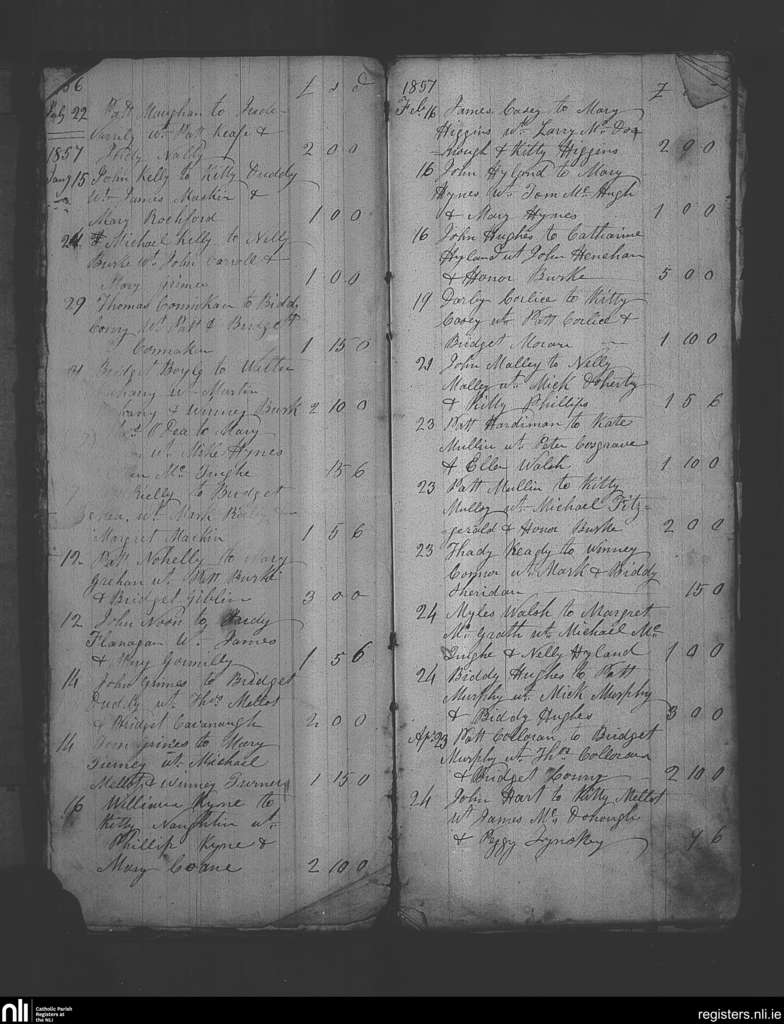 56 £ s d
July 22 Patt Maughan to
wt. Patt Keafe &
Nally 2 0 0
1857
Jany 15 John Kelly to Kitty Cuddy
Wt. James Maskin &
Mary Rochford 1 0 0
21 Michael Kelly to Nelly
Burke wt. John Carroll &
Mary 1 0 0
29 Thomas to Biddy
Wt. Patt & Bridget
1 15 0
31 Bridget to
wt. Martin
& Winney Burk 2 10 0
O Dea to Mary
wt. Mike Hynes
Mc Tinghe 15 6
Kielly to Bridget
wt. Mark &
Margret Maskin 1 5 6
12 Patt Nohelly to Mary
Grehan wt. Patt Burke
& Bridget Giblin 3 0 0
12 John Noon to
Flanagan W. James
& Gormilly 1 5 6
14 John Grimes to Bridget
Duddy wt. Thos. Mellot
& Bridget Cavanaugh 2 0 0
14 Tom Grimes to Mary
Turney wt. Michael
Mellot & Winney Turney 1 15 0
16 William Kyne to
Kitty Naughtin wt.
Phillip Kyne &
Mary Coane 2 10 0
1857 £
Feb. 16 James Casey to Mary
Higgins wt. Larry Mc. Don
-nough & Kitty Higgins 2 0 0
16 John Hyland to Mary
Hynes wt. Tom Mc. Hugh
& Mary Hynes 1 0 0
16 John Hughes to Catharine
Hyland wt John Henehan
& Honor Burke 5 0 0
19 Darby Corlice to Kitty
Casey wt. Patt Corlice &
Bridget Moran 1 10 0
21 John Malley to Nelly
Malley wt. Mick Doherty
& Kitty Phillips 1 5 6
23 Patt Hardiman to Kate
Mullin wt. Peter Cosgrave
& Ellen Walsh 1 10 0
23 Patt Mullin to Kitty
Mulloy wt. Michael Fitz-
gerald & Honor Burke 2 0 0
23 Thady Keady to Winney
Connor wt. Mark & Biddy
Sheridan 15 0
24 Myles Walsh to Margret
Mc. Grath wt. Michael Mc.
Tinghe & Nelly Hyland 1 0 0
24 Biddy Hughes to Patt
Murphy wt. Mick Murphy
& Biddy Hughes 3 0 0
Apr. 23 Patt Colloran to Bridget
Murphy wt. Thos. Colloran
& Bridget 2 10 0
24 John Hart to Kitty Mellot
wt James Mc. Donough
& Peggy Lynskey 7 6
nli Catholic Parish
Registers at
the NLI
registers.nli.ie